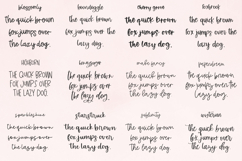 the quick brown
fox jumps over
the lazy dog.
the quick brown
fox jumps over
the lazy dog.
the quick brown
fox jumps over
the lazy dog.
the quick brown
fox jumps over
the lazy dog.
THE QUICK BROWN
FOX JUMPS OVER
THE LAZY DOG.
the quick brown
fox jumps over
the lazy dog.
the quick brown
fox jumps over
the lazy dog.
the quick brown
fox jumps over
the lazy dog.
the quick brown
fox jumps over
the lazy dog.
starstruck
the quick brown
fox jumps over
the lazy dog.
the quick brown
fox jumps over
the lazy dog.
the quick brown
fox jumps over
the lazy dog.